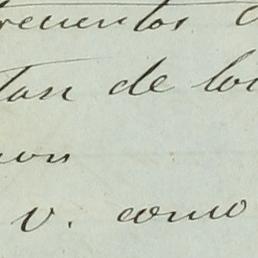 recuentos
tan de los
non
v. como